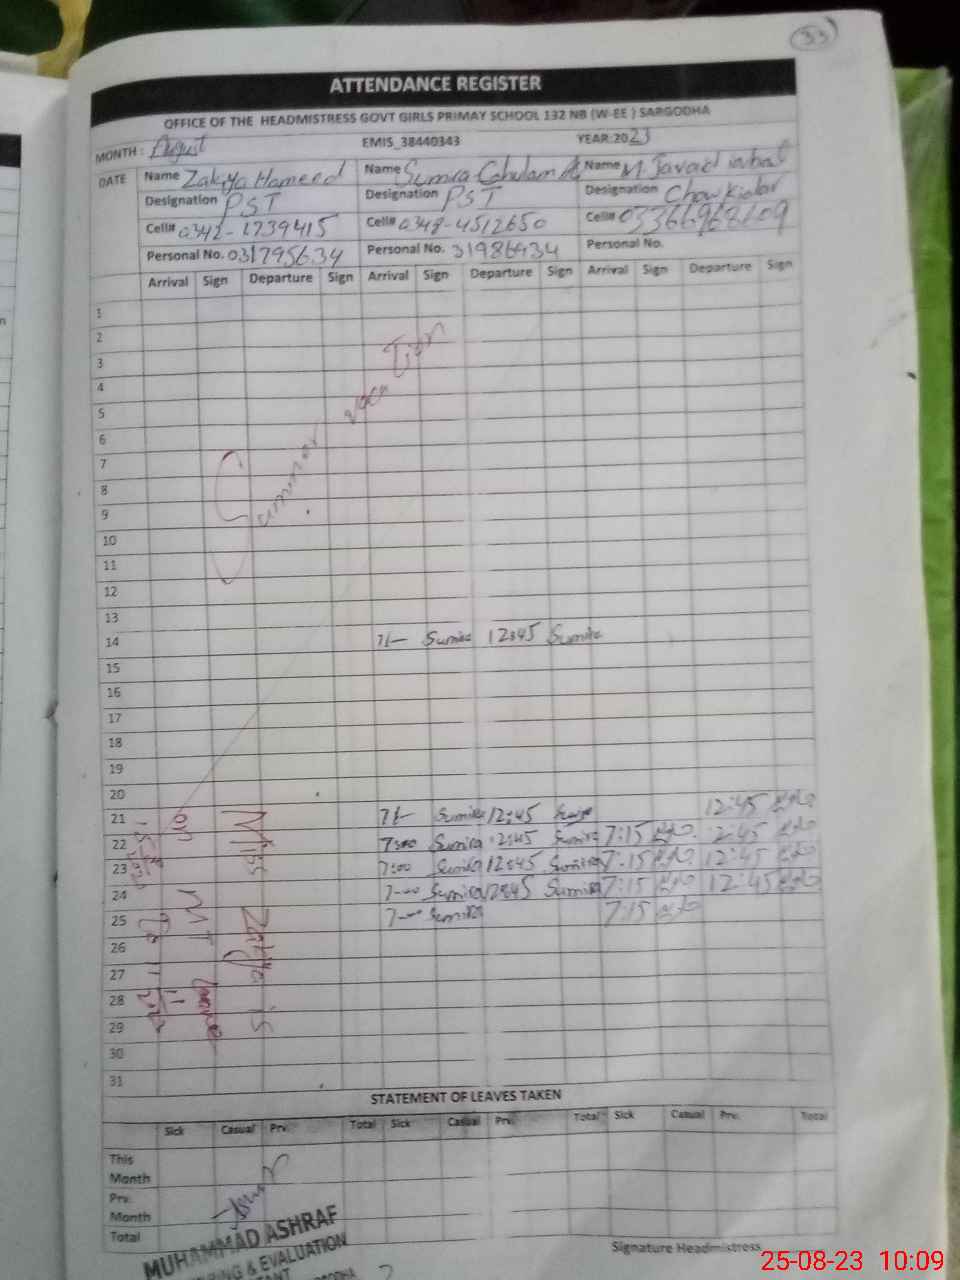 33
ATTENDANCE REGISTER
OFFICE OF THE HEADMISTRESS GOVT GIRLS PRIMAY SCHOOL 132 NB (W-EE ) SARGODHA
MONTH : August EMIS_38440343 YEAR:2023
DATE Name Zakiya Hameed Name Sumira Ghulam Name M. Javaid
Designation PST Designation PST Designation Chowkidar
Cell# 0342-1739415 Cell# 0348-4512650 Cell#
Personal No. Personal No. 31986434 Personal No.
Arrival Sign Departure Sign Arrival Sign Departure Sign Arrival Sign Departure Sign
1
2
3
4
5
6
7
8
9
10
11
12
13
Summer vacation
14 7/- Sumira 12:45 Sumira
15
16
17
18
19
20
21 7/- Sumira 12:45 12:45
22 7:00 Sumira 12:45 Sumira 7:15 12:45
23 7:00 Sumira 12:45 Sumira 7:15 12:45
24 7-00 Sumira 12:45 Sumira 7:15 12:45
25 7-00 Sumira 7:15
26
27
28
29
30
31
Miss Zakiya is
on MT leave
STATEMENT OF LEAVES TAKEN
Sick Casual Prv. Total Sick Casual Prv. Total Sick Casual Prv. Total
This
Month
Prv.
Month
Total
MUHAMMAD ASHRAF
& EVALUATION
Signature Headmistress
25-08-23 10:09